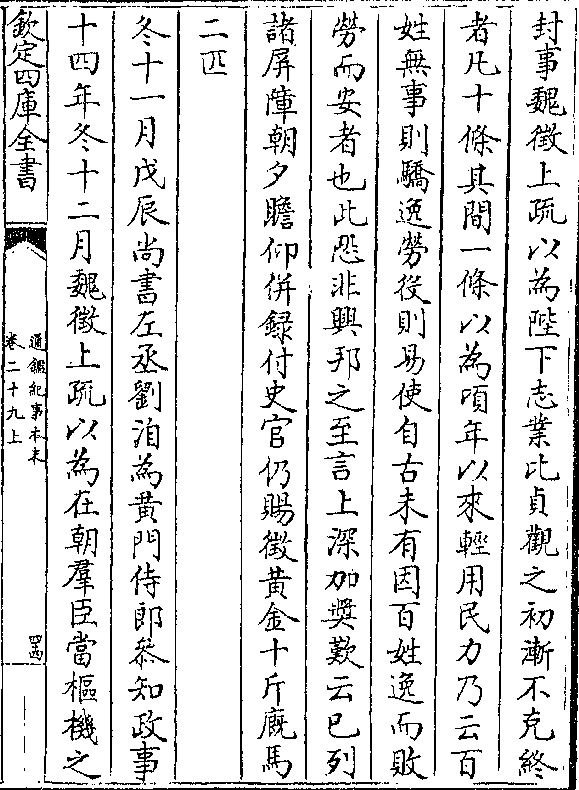 封事魏徵上疏以為陛下志業比貞觀之初漸不克終
者凡十條其間一條以為頃年以來輕用民力乃云百
姓無事則驕逸勞役則易使自古未有因百姓逸而敗
勞而安者也此恐非興邦之至言上深加奬歎云已列
諸屏障朝夕瞻仰併録付史官仍賜徵黄金十斤廐馬
二匹
冬十一月戊辰尚書左丞劉洎為黄門侍郎叅知政事
十四年冬十二月魏徵上疏以為在朝羣臣當樞機之
欽定四庫全書
通鑑紀事本末
卷二十九上
四四